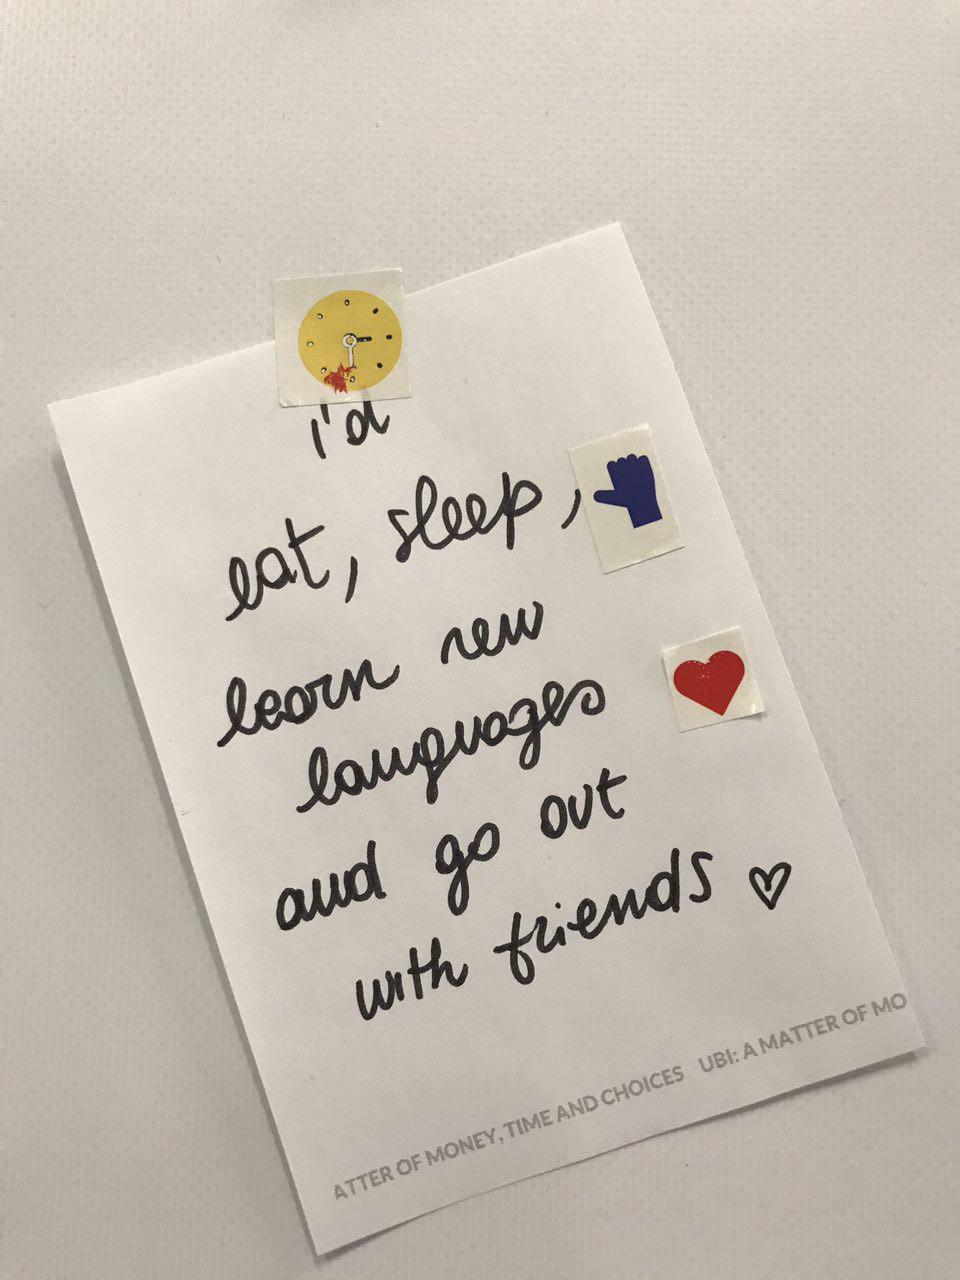 i'd
eat, sleep,
learn new
languages
and go out
with friends
ATTER OF MONEY, TIME AND CHOICES UBI: A MATTER OF MO